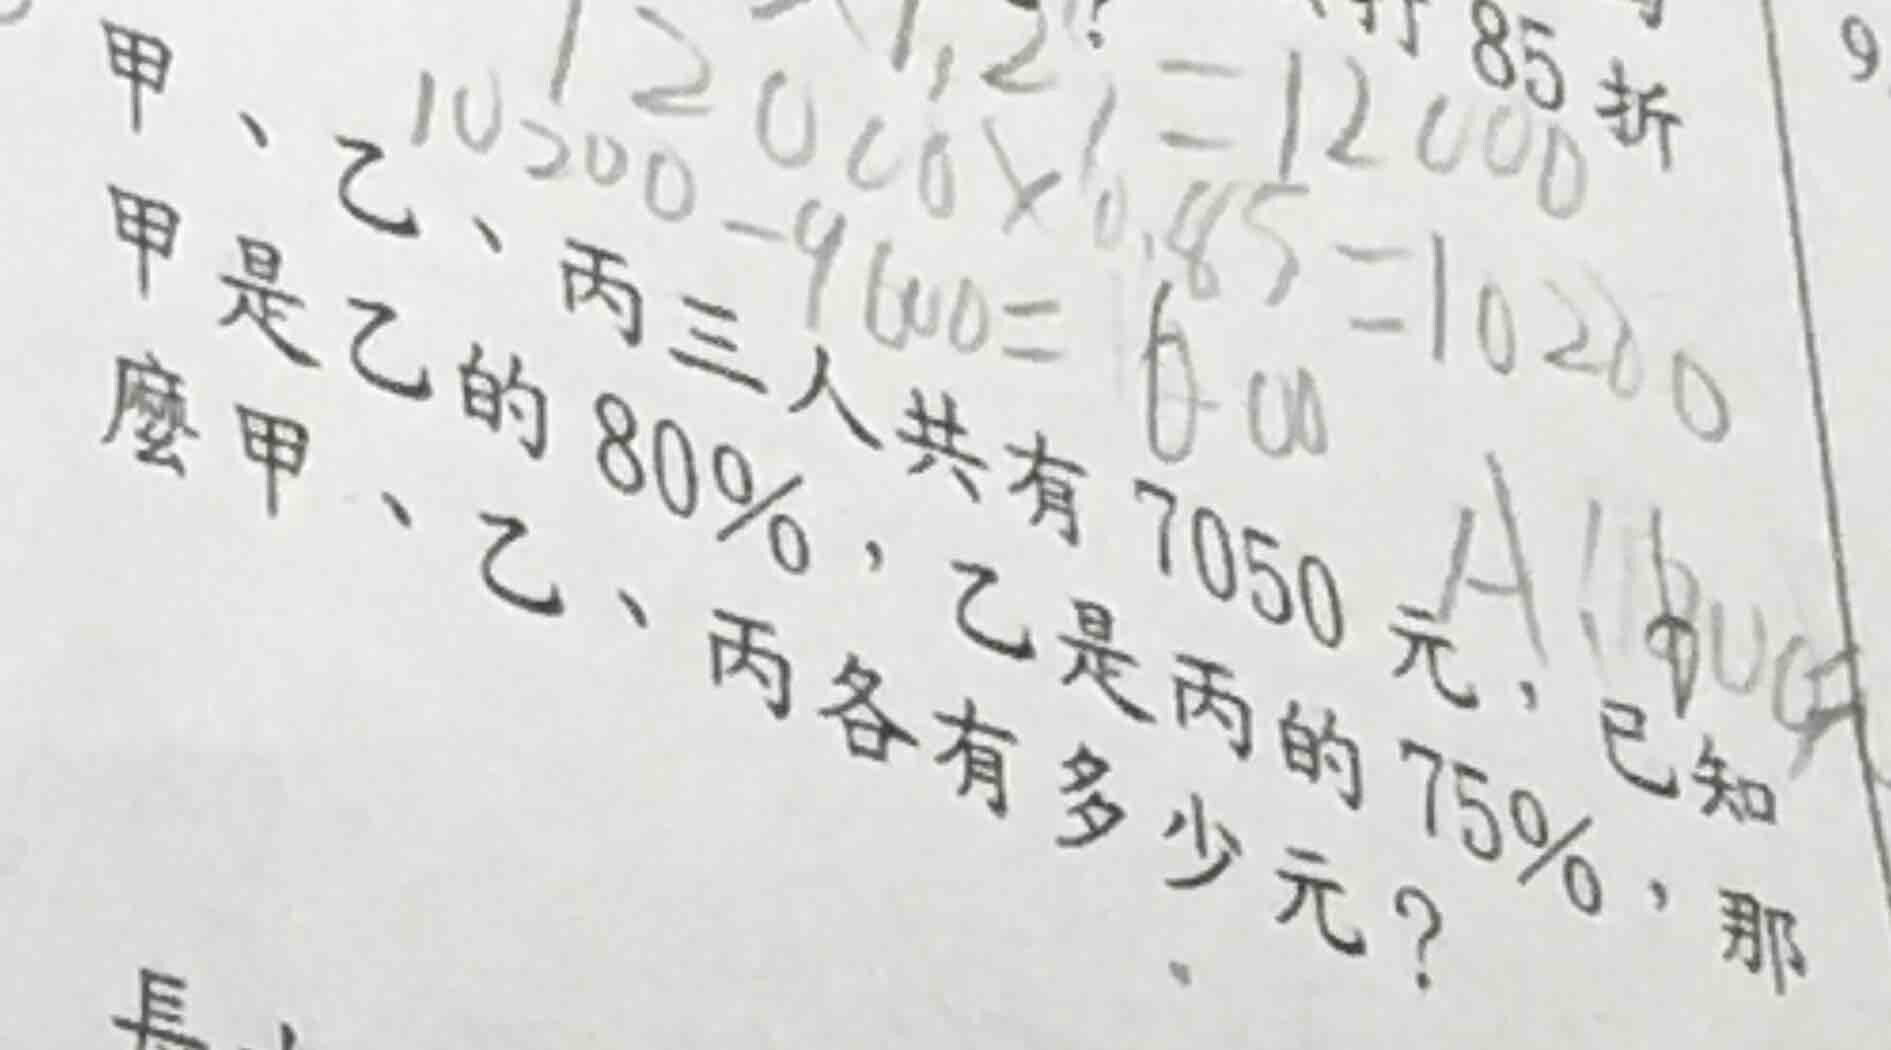 85 折
×1.2 = 12000
12000 × 0.85 = 10200
10200 - 9600 = 600
甲、乙、丙三人共有 7050 元，已知
甲是乙的 80%，乙是丙的 75%，那
麼甲、乙、丙各有多少元？
A:
長
9